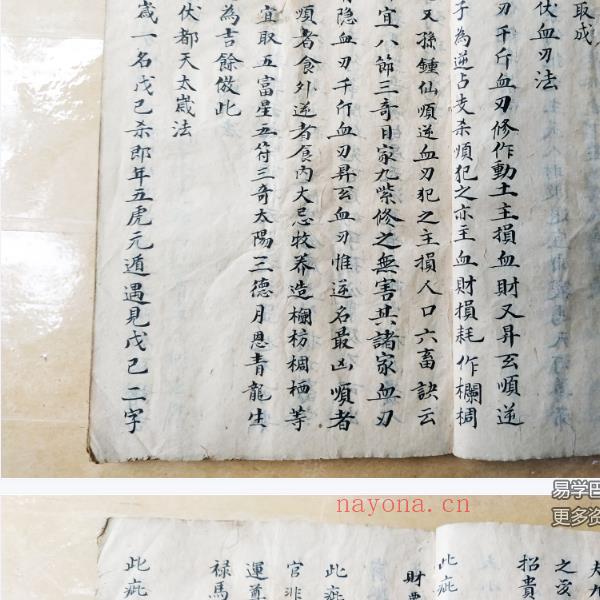 取成
伏血刃法
刃千斤血刃修作動土主損血財又昇玄順逆
子為逆占支杀順犯之亦主血財損耗作欄椆
又孫鍾仙順逆血刃犯之主損人口六畜訣云
宜八節三奇日家九紫修之無害其諸家血刃
隐血刃千斤血刃昇玄血刃惟逆名最凶順者
順者食外逆者食内大忌牧养造欄枋椆栖等
宜取五富星五符三奇太陽三德月恩青龍生
為吉餘倣此
伏都天太歲法
歲一名戊己杀即年五虎元遁遇見戊己二字
nayona.cn
易学巴
更多资
之爻
招貴
此疵
財
此疵
官非
運
禄馬
此疵